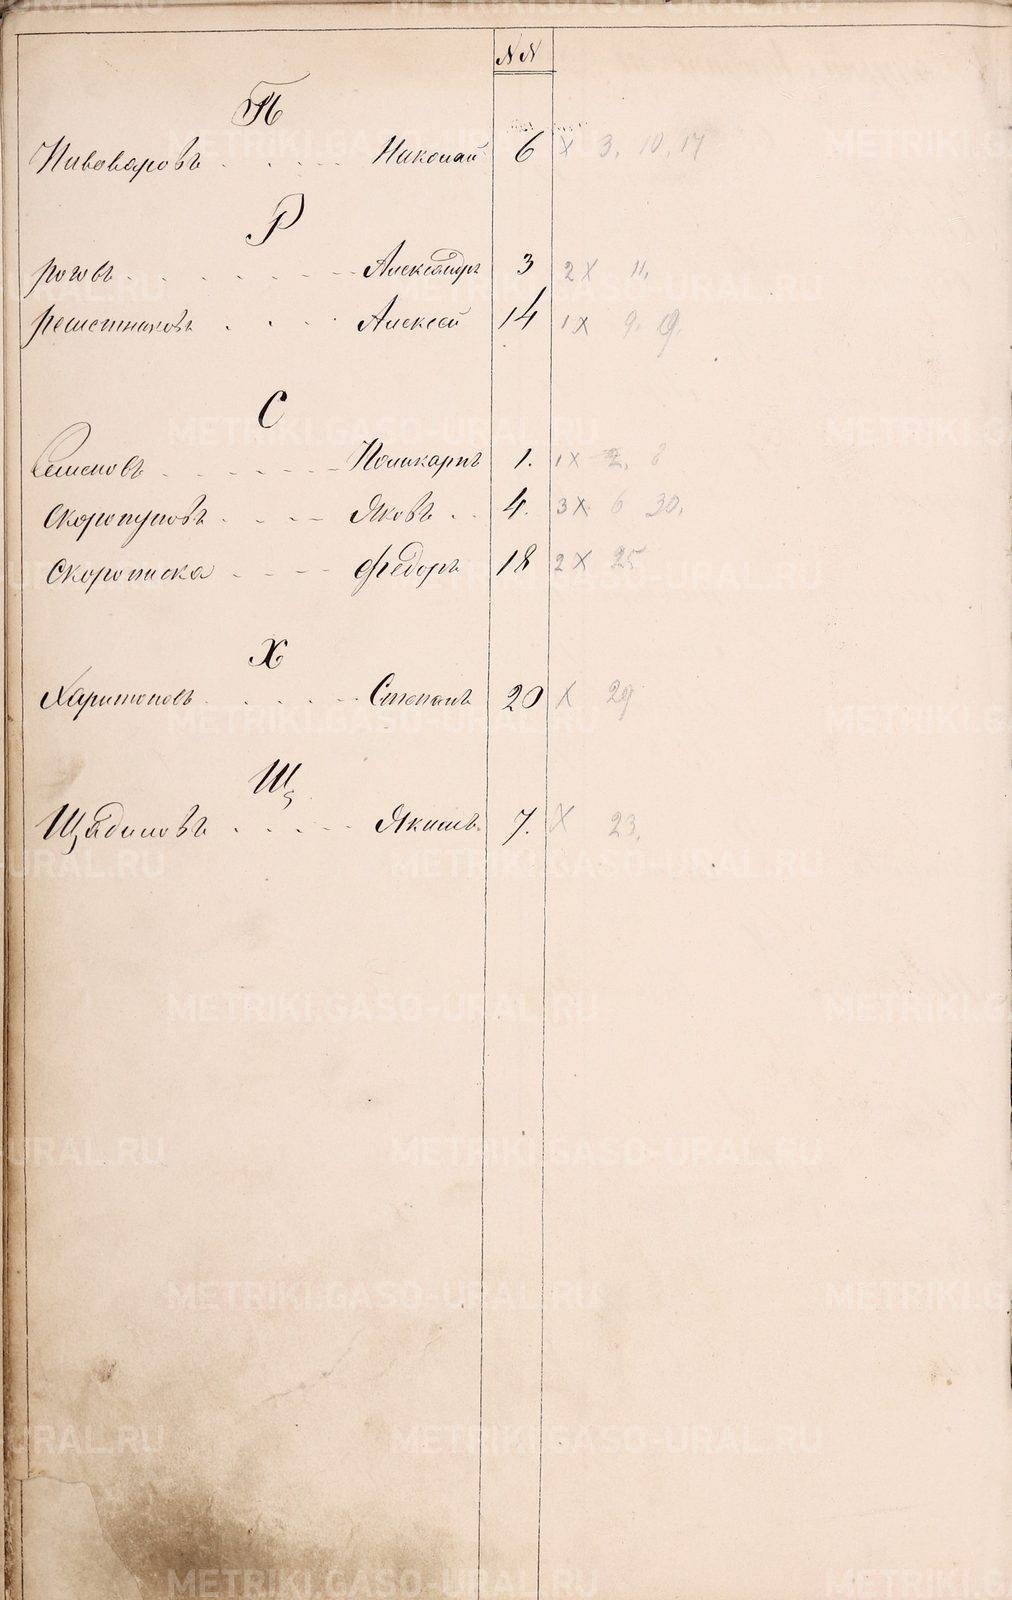 NN
П
Пивоваровъ . . . . . Николай 6 X 3. 10. 17
Р
Роговъ . . . . . . Александръ 3 2 X 11.
Решетниковъ . . . Алексей 14 1 X 9. 19.
С
Семеновъ . . . . . . Поликарпъ 1. 1 X 2. 8
Скоропуповъ . . . . Яковъ . . 4. 3 X 6 30.
Скорописка . . . Федоръ 18 2 X 25
Х
Харитоновъ . . . . . Степанъ 20 X 29
Щ
Щадиловъ . . . . . Якимъ. 7. X 23.
METRIKI.GASO-URAL.RU